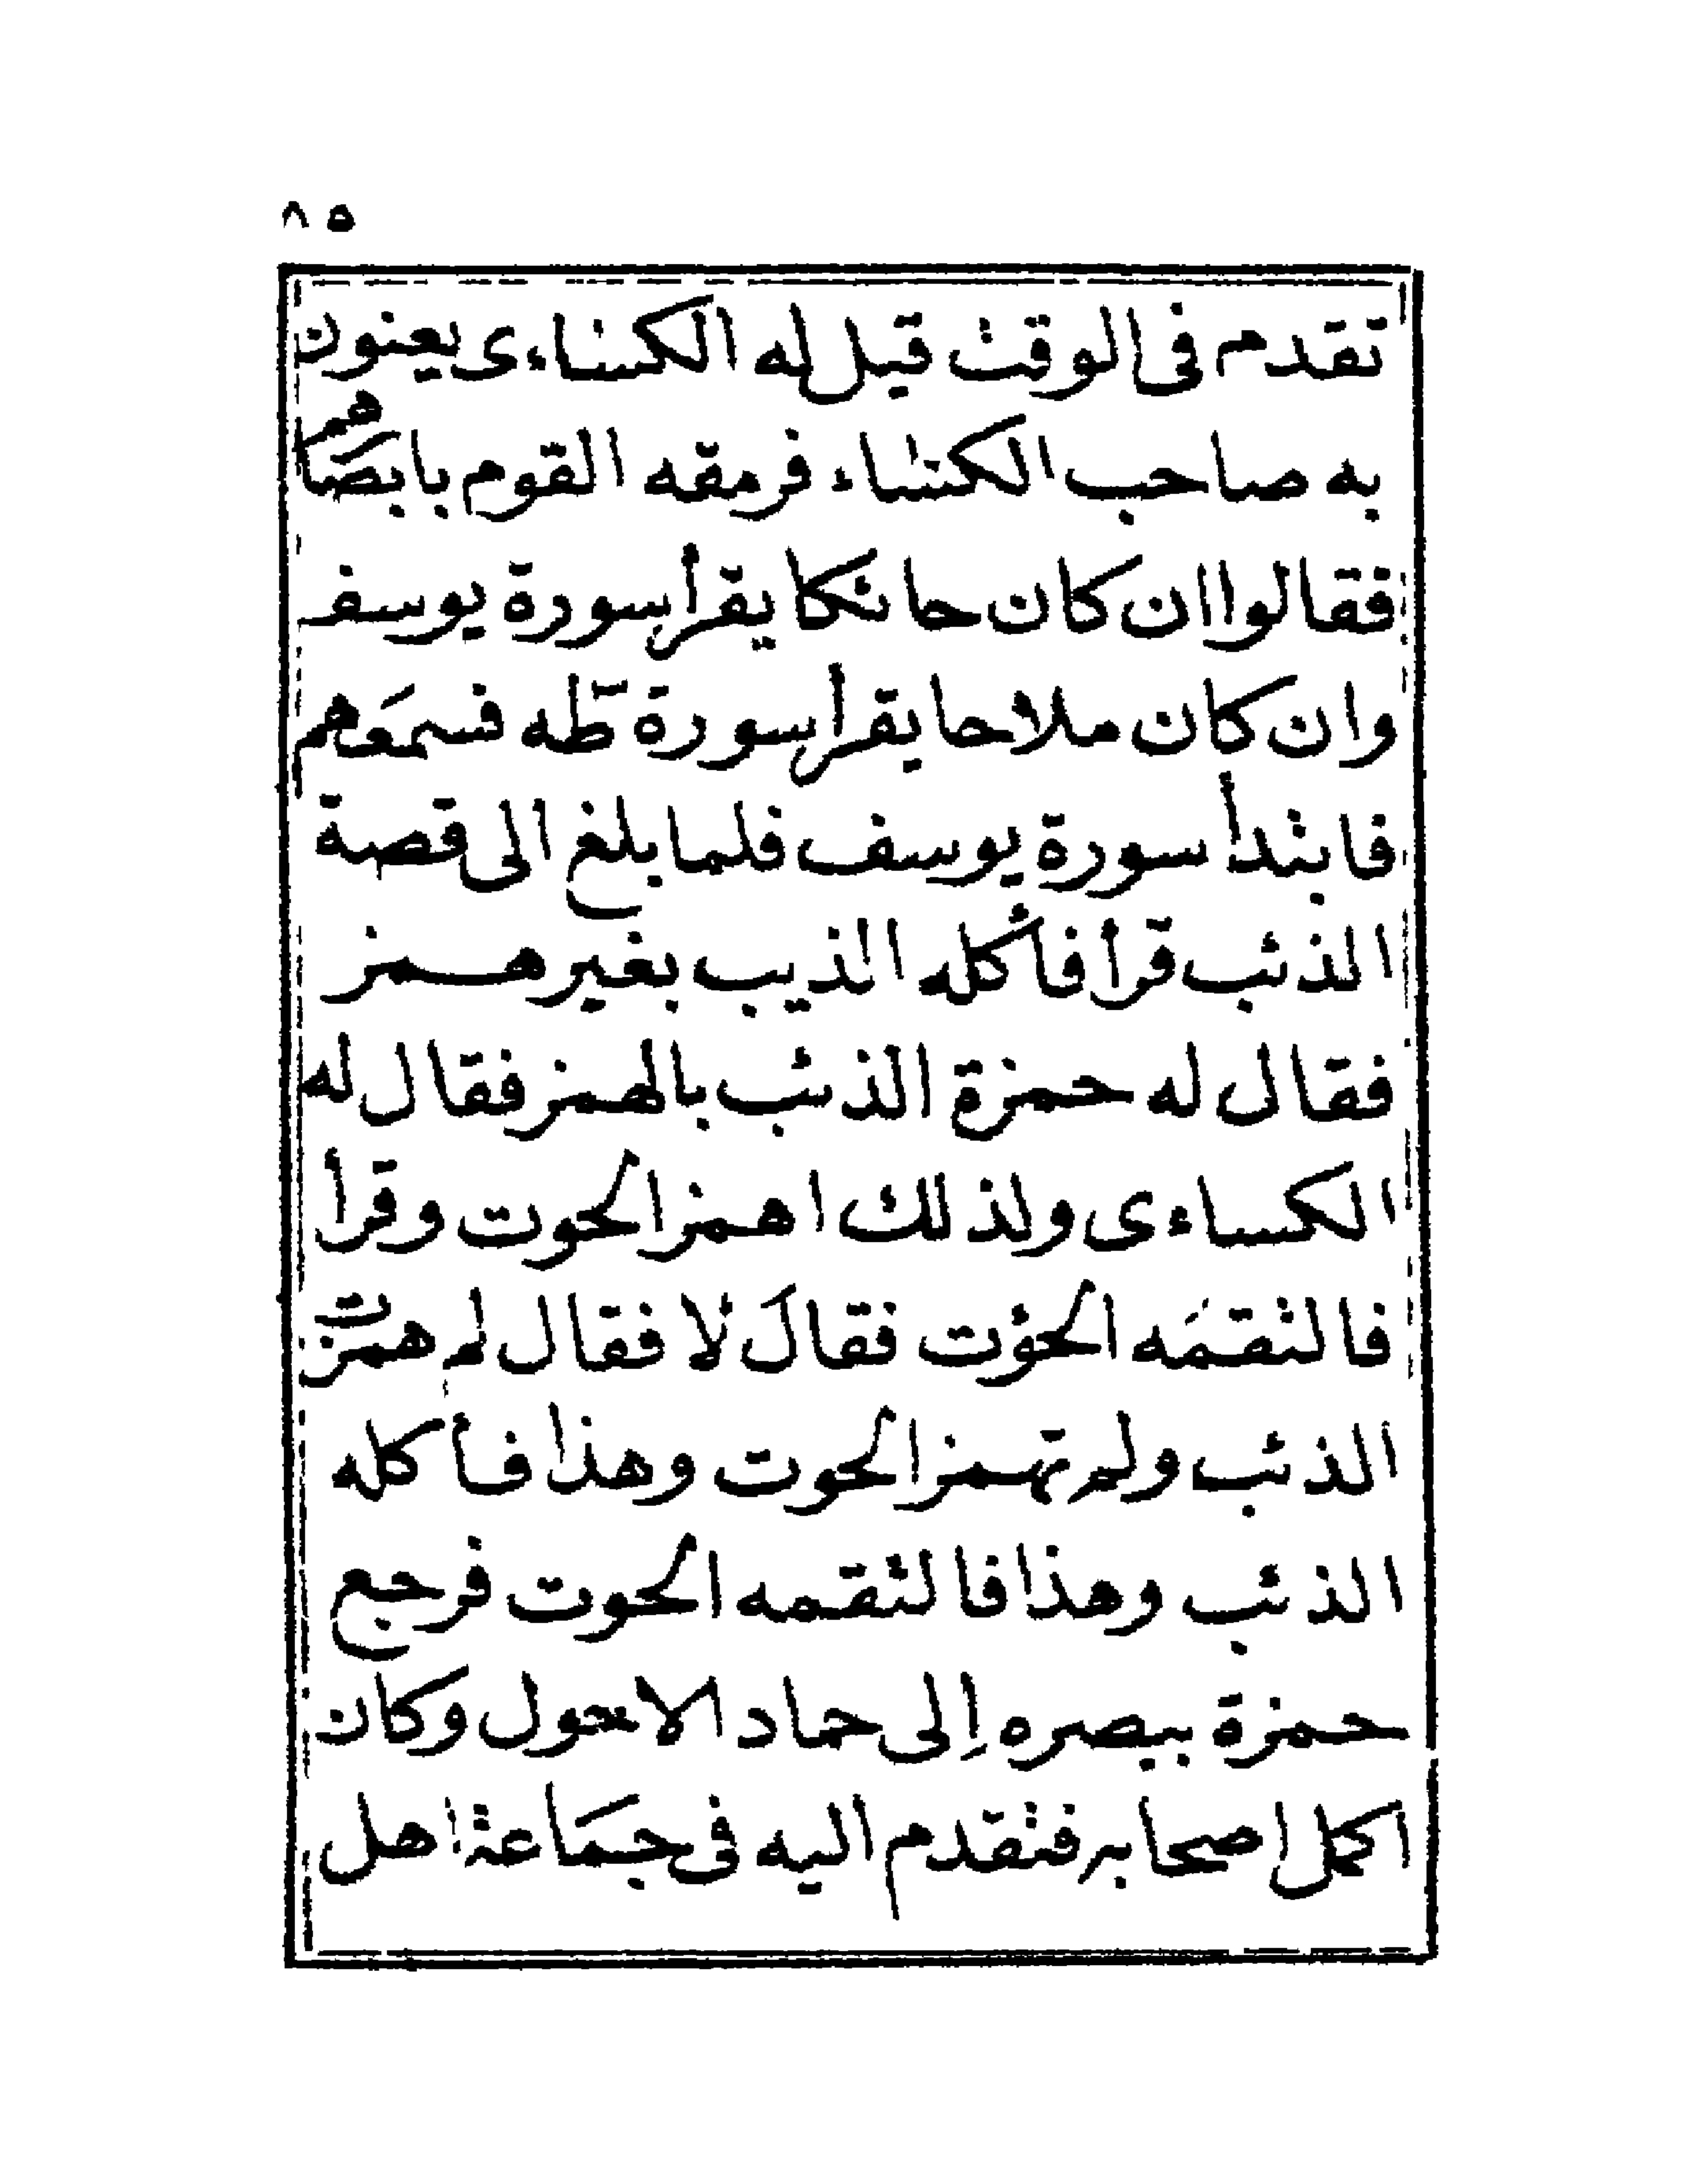 ٨٥
تقدم فى الوقت قيل له الكساءى يعنون
به صاحب الكساء فرمقه القوم بابصاهم
فقالوا ان كان حائكا يقرأ سورة يوسف
وان كان ملاحا يقرأ سورة طه فسمعهم
فابتدأ سورة يوسف فلما بلغ الى قصة
الذئب قرأ فأكله الذيب بغير همز
فقال له حمزة الذئب بالهمز فقال له
الكساءى ولذلك اهمز الحوت وقرأ
فالتقمه الحؤت فقال لا فقال لم همزت
الذئب ولم تهمز الحوت وهذا فأكله
الذئب وهذا فالتقمه الحوت فرجع
حمزة ببصره إلى حماد الاحول وكان
اكمل اصحابه فتقدم اليه فى جماعة اهل